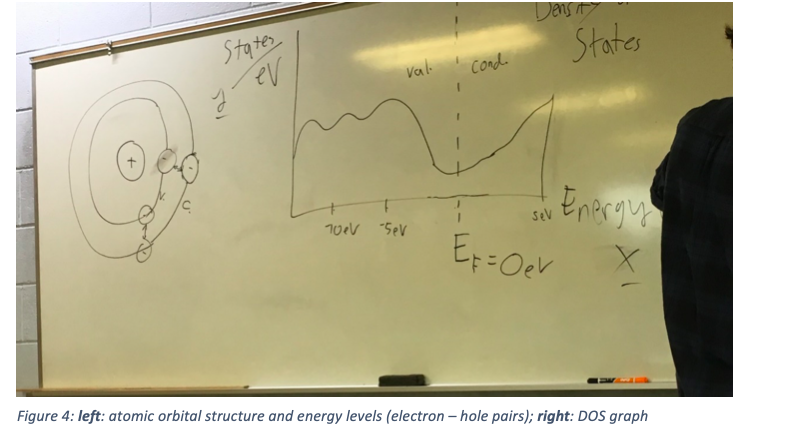 Density of
States
States/eV
y
val.
cond.
+
-
-
-
-
-10eV
-5eV
5eV
Energy
E_F=0eV
X
Figure 4: left: atomic orbital structure and energy levels (electron – hole pairs); right: DOS graph